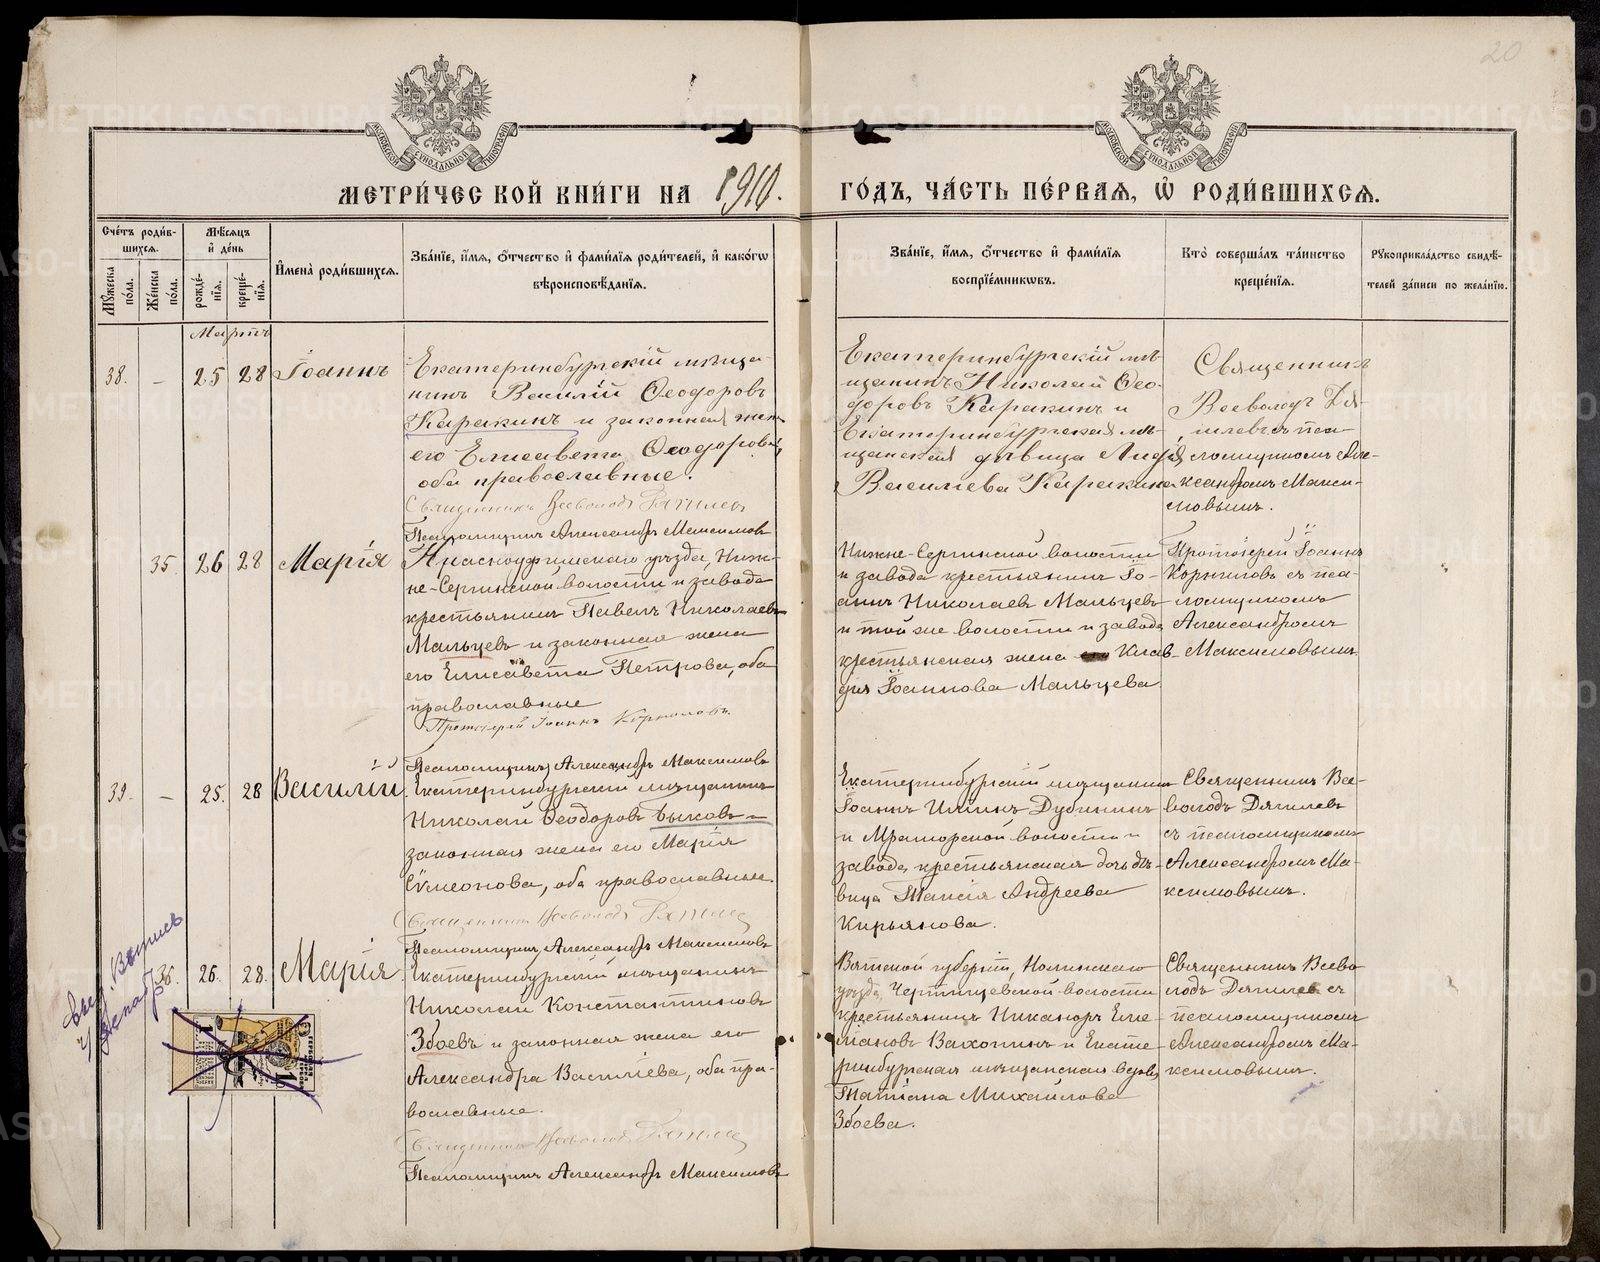 20
МОСКОВСКОЙ СѴНОДАЛЬНОЙ ТИПОГРАФІИ
МОСКОВСКОЙ СѴНОДАЛЬНОЙ ТИПОГРАФІИ
МЕТРИ́ЧЕСКОЙ КНИ́ГИ НА 1910.
ГО́ДЪ, ЧА́СТЬ ПЕ́РВАЯ, Ѡ҆ РОДИ́ВШИХСЯ.
Сче́тъ роди́в-
шихся.
Мꙋжеска по́ла.
Же́нска по́ла.
Мѣсяцъ
и҆ де́нь
рожде́-
нїя.
креще́-
нїя.
И҆мена̀ роди́вшихся.
Зва́нїе, и҆́мя, ѻ҆́тчество и҆ фами́лїя роди́телей, и҆ како́гѡ
вѣроисповѣ́данїя.
Зва́нїе, и҆́мя, ѻ҆́тчество и҆ фами́лїя
воспрїе́мникѡвъ.
Кто̀ соверша́лъ та́инство
креще́нїя.
Рꙋкоприкла́дство свидѣ́-
телей за́писи по жела́нїю.
Мартъ
38.
–
25
28
Іоаннъ
Екатеринбургскій мѣща-
нинъ Василій Ѳеодоровъ
Каракинъ и законная жена
его Елисавета Ѳеодорова,
оба православные.
Священникъ Всеволодъ Дягилевъ
Псаломщикъ Александръ Максимовъ
Екатеринбургскій мѣ-
щанинъ Николай Ѳео-
доровъ Каракинъ и
Екатеринбургская мѣ-
щанская дѣвица Лидія
Васильева Каракина
Священникъ
Всеволодъ Дя-
гилевъ съ пса-
ломщикомъ Але-
ксандромъ Макси-
мовымъ.
35.
26
28
Марія
Красноуфимскаго уѣзда, Ниж-
не-Сергинской волости и завода
крестьянинъ Павелъ Николаевъ
Мальцевъ и законная жена
его Елисавета Петрова, оба
православные
Протоіерей Іоаннъ Корниловъ.
Псаломщикъ Александръ Максимовъ
Нижне-Сергинской волости
и завода крестьянинъ Іо-
аннъ Николаевъ Мальцевъ
и той же волости и завода
крестьянская жена Клав-
дія Іоаннова Мальцева
Протоіерей Іоаннъ
Корниловъ съ пса-
ломщикомъ
Александромъ
Максимовымъ
39.
–
25.
28
Василій
Екатеринбургскій мѣщанинъ
Николай Ѳеодоровъ Быковъ и
законная жена его Марія
Сѵмеонова, оба православные.
Священникъ Всеволодъ Дягилевъ
Псаломщикъ Александръ Максимовъ
Екатеринбургскій мѣщанинъ
Іоаннъ Иліинъ Дубининъ
и Мраморской волости и
завода, крестьянская дочь дѣ-
вица Таисія Андреева
Кирьянова.
Священникъ Все-
володъ Дягилевъ
съ псаломщикомъ
Александромъ Ма-
ксимовымъ.
36.
26.
28.
Марія
Екатеринбургскій мѣщанинъ
Николай Константиновъ
Збоевъ и законная жена его
Александра Василіева, оба пра-
вославные.
Священникъ Всеволодъ Дягилевъ
Псаломщикъ Александръ Максимовъ
Вятской губерніи, Нолинскаго
уѣзда, Чертищевской волости
крестьянинъ Никаноръ Еме-
ліановъ Вахонинъ и Екате-
ринбургская мѣщанская вдова
Татіана Михайлова
Збоева.
Священникъ Всево-
лодъ Дягилевъ съ
псаломщикомъ
Александромъ Ма-
ксимовымъ.
METRIKI.GASO-URAL.RU